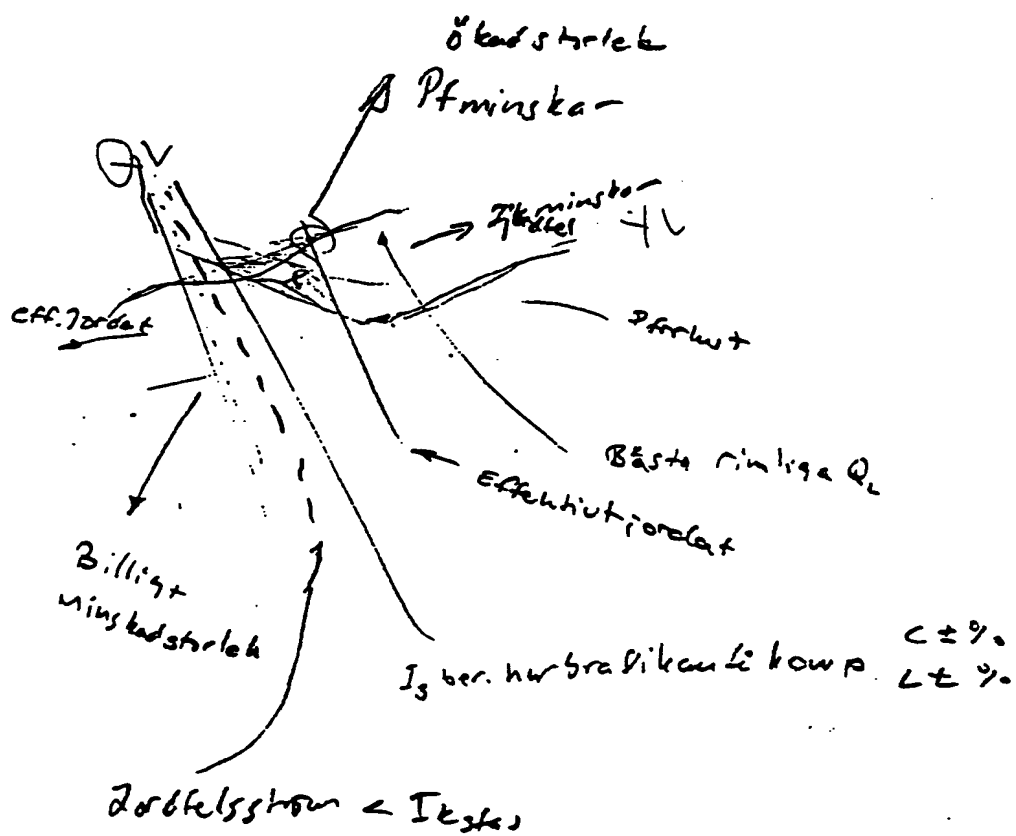 Ökad storlek
Pf minskar
Ik minskar
V
eff. Jordat
Pförlust
Bästa rimliga QL
Effektivt jordat
Billigt
minskad storlek
Is ber. hur bra vi kan ti komp.
C ±%
L ± %
Jordfelsström < Ik